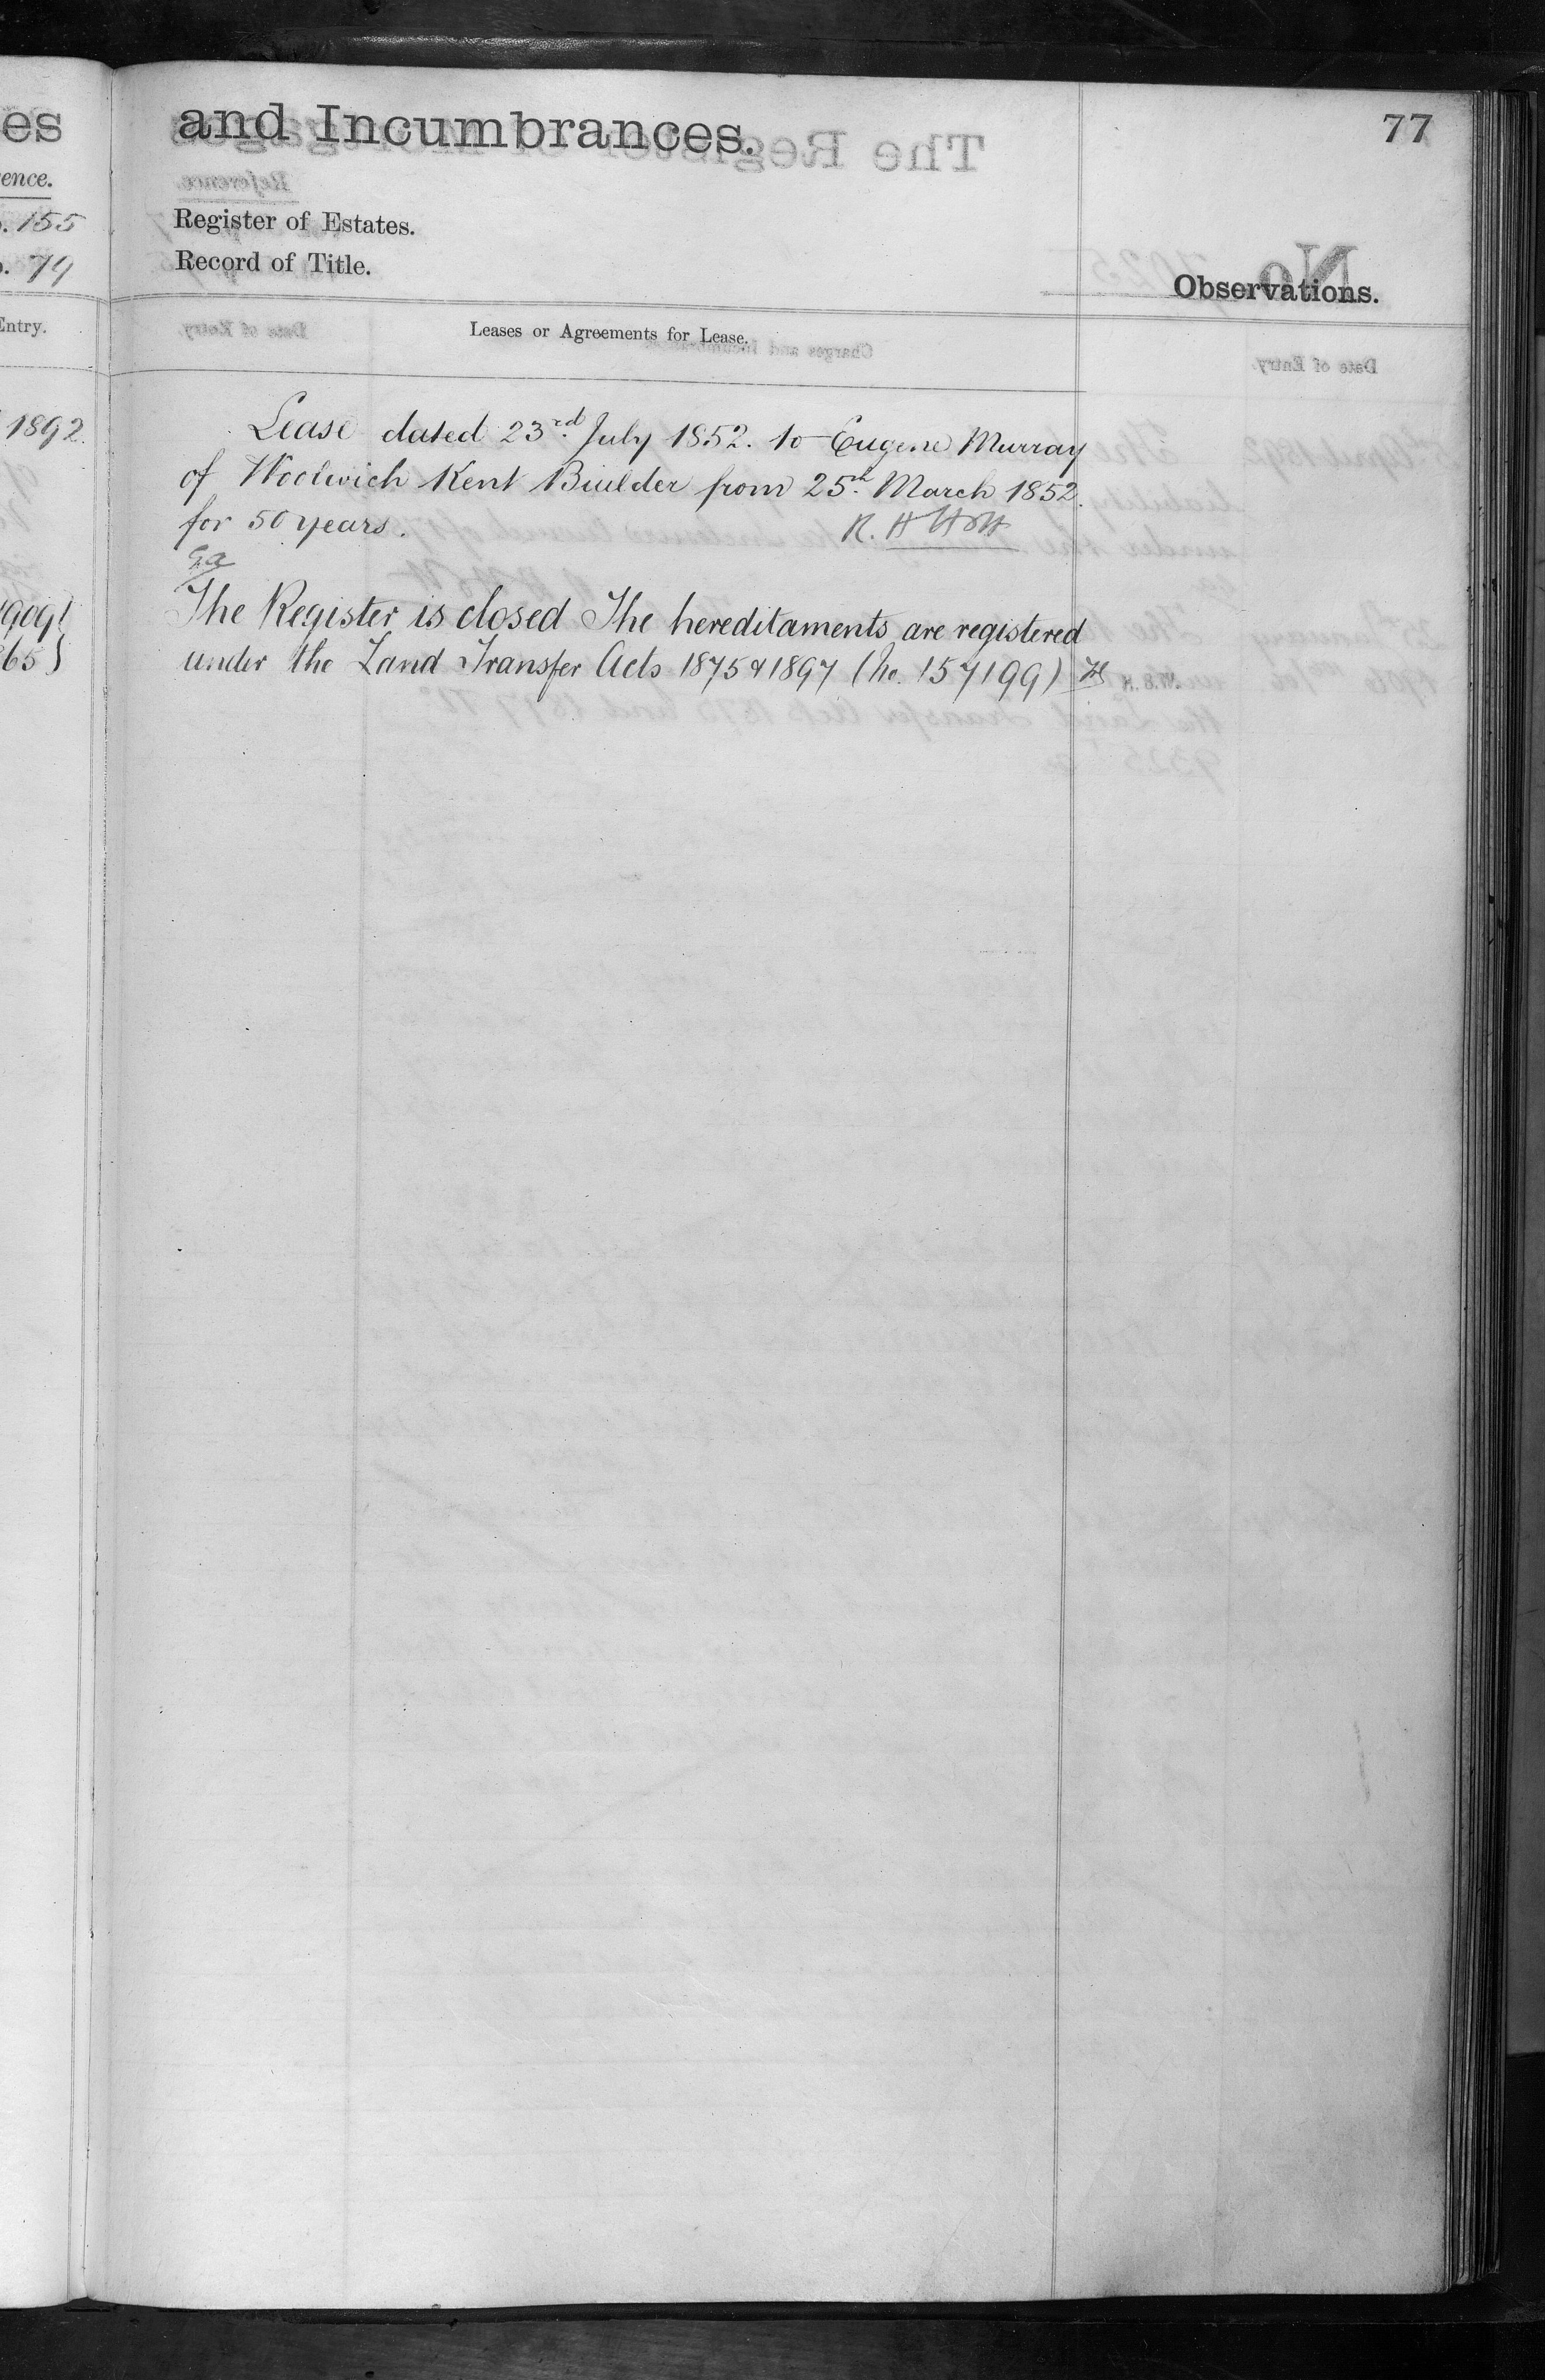 es
and Incumbrances.
77
ence.
155
Register of Estates.
79
Record of Title.
Observations.
Entry.
Leases or Agreements for Lease.
1892.
Lease dated 23rd. July 1852. to Eugene Murray
of Woolwich Kent Builder from 25th. March 1852.
for 50 years.
R. H Holt
The Register is closed The hereditaments are registered
under the Land Transfer Acts 1875 & 1897 (No. 157199)